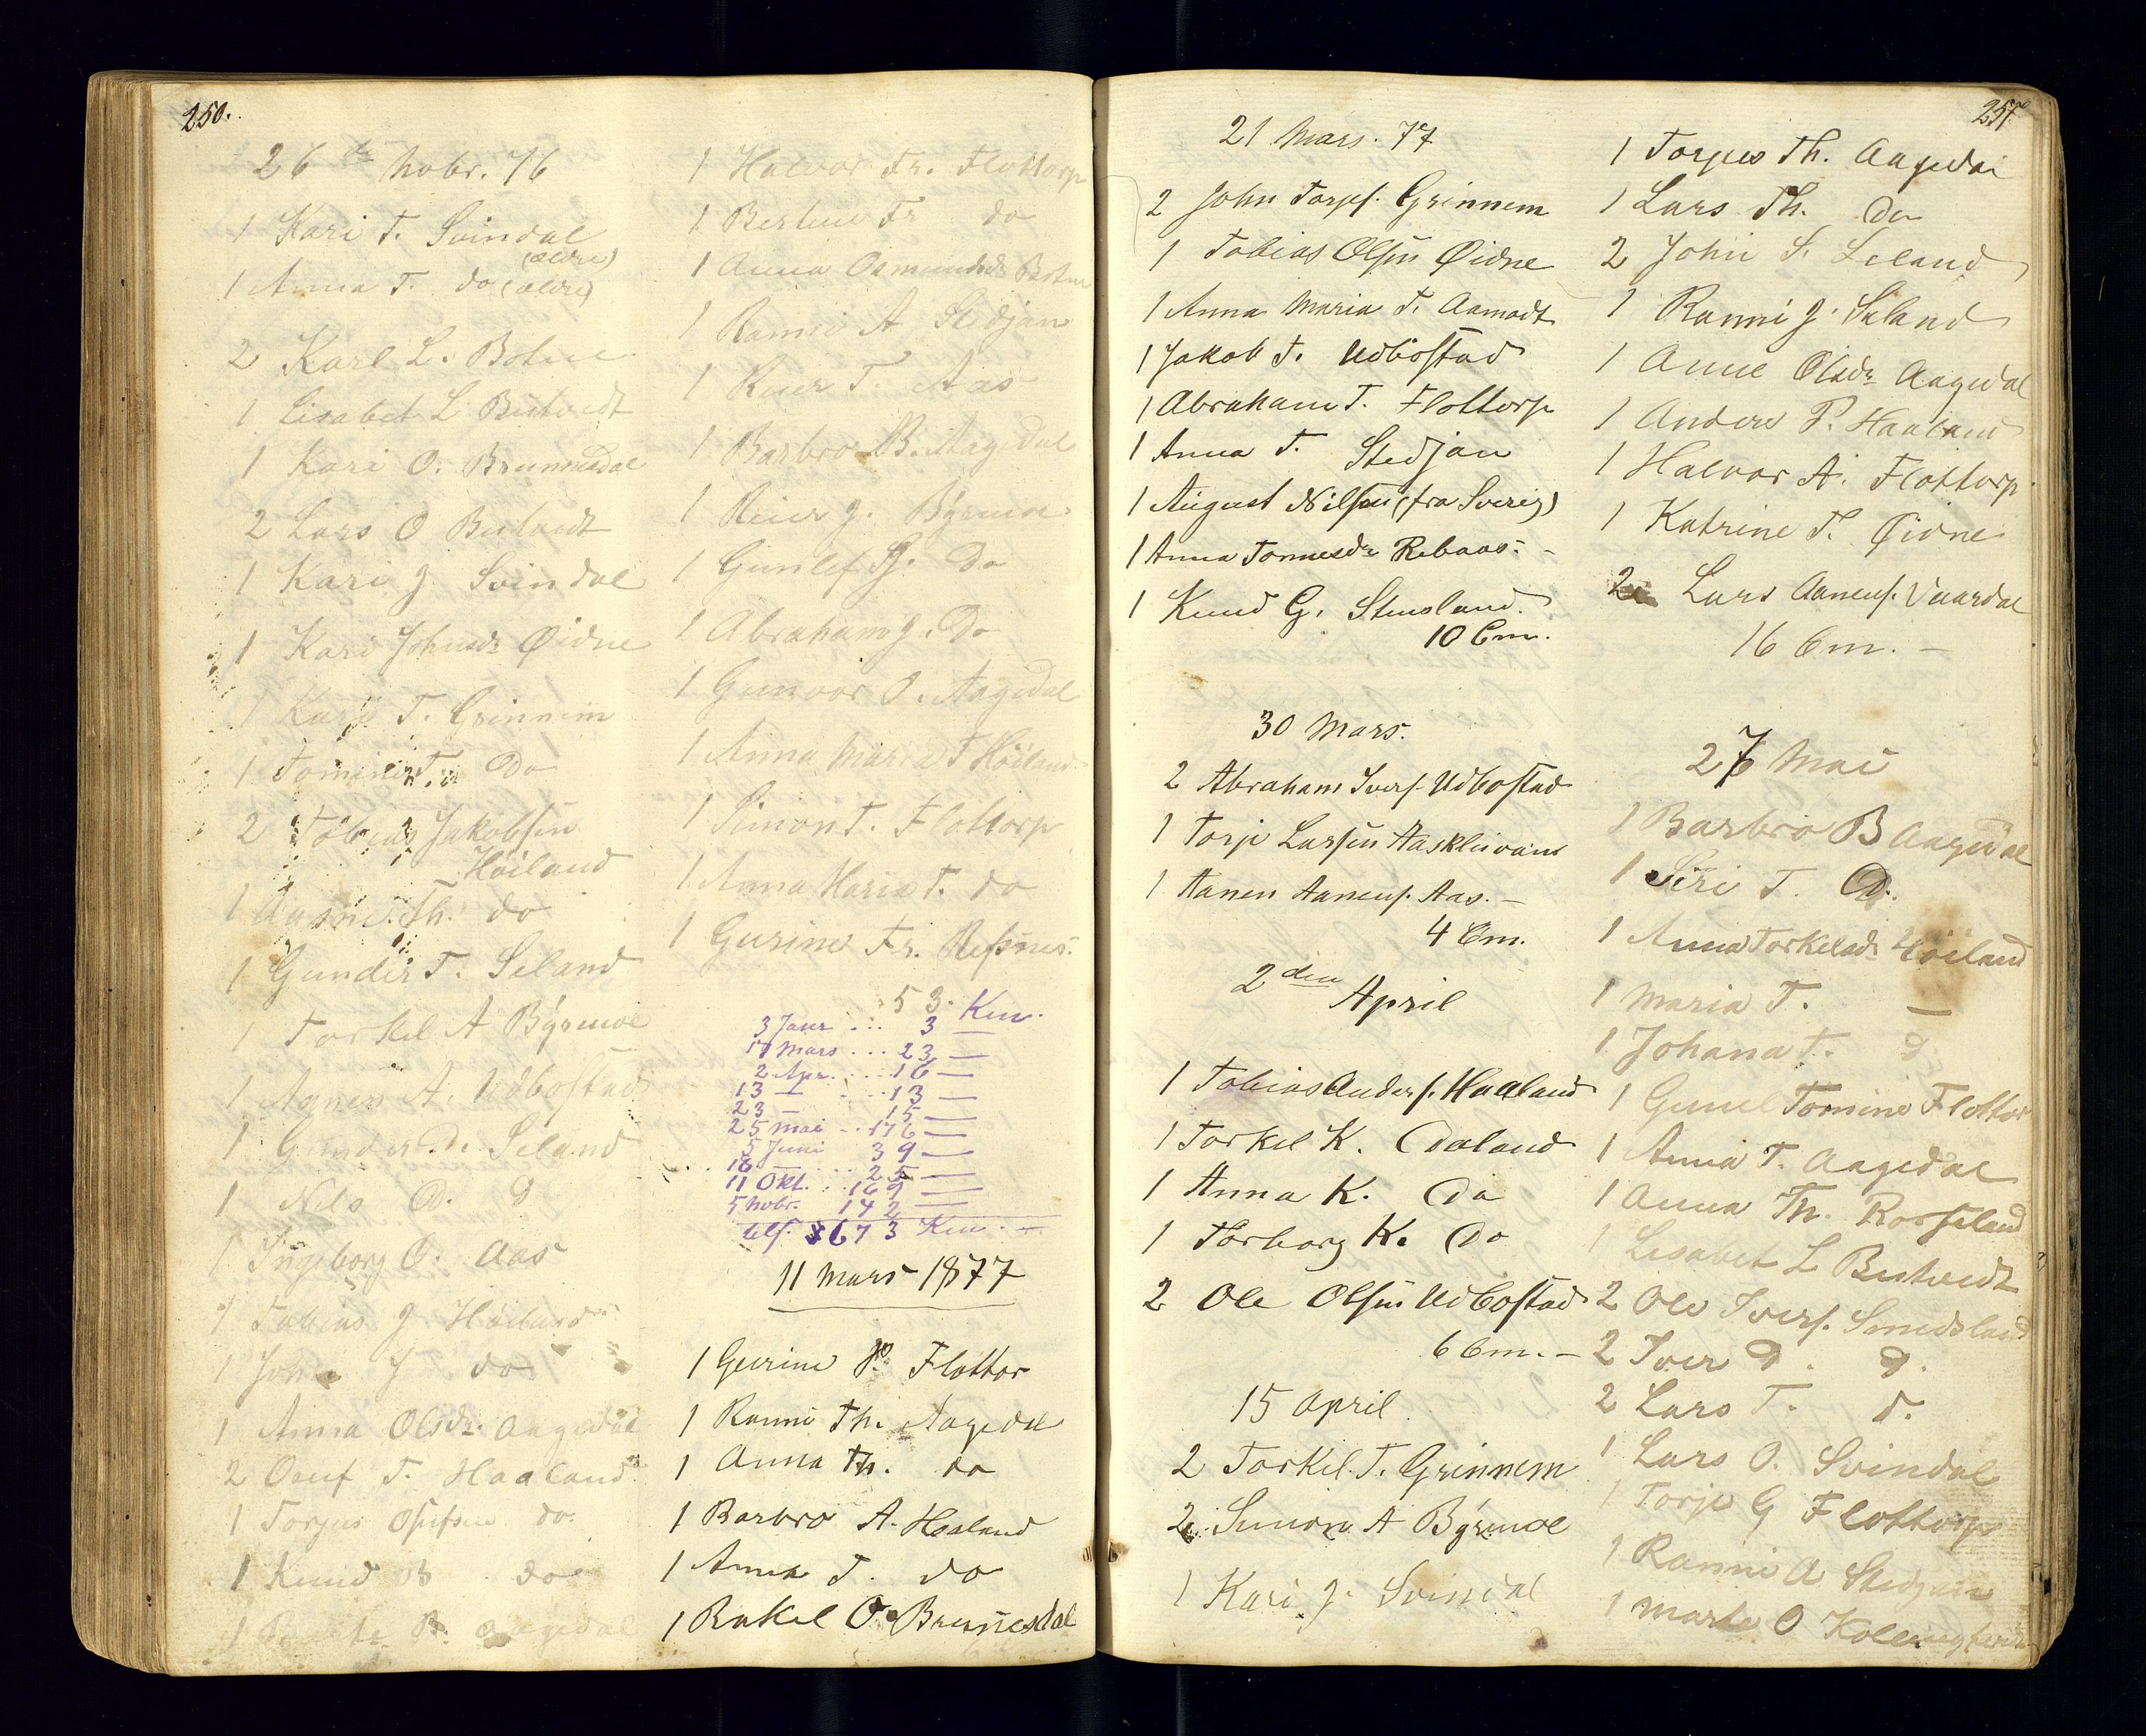 250.
26 de Nobr. 76
1 Kari T. Svindal
(ældre)
1 Anna T. do (ældre)
2 Karl L. Botne
1 Lisabet L Bustvedt
1 Kari O. Brunnesdal
2 Lars O Bustvedt
1 Kari J Svindal
1 Kari Johnsdr Øidne
1 Kari T. Grinnem
1 Tomine T. Do
2 Tobias Jakobsen
Höiland
1 Th. do
1 Gunder T. Seland
1 Torkel A Byrmoe
1 Agnes A. Udbøstad
1 Gunder Seland
1 Nels D. d
1 Ingeborg O. Aas
1 Tobias J Höiland
1 John J do
1 Anna Olsdr. Aagedal
2 Osuf T. Haaland
1 Torjus Osufsen do.
1 Knud B do
1 B. Aagedal
1 Halvor Fr. Flottorp
1 Berline Fr do
1 Anna Osmundsdr Botne
1 Ranni A Stedjan
1 Reier T. Aas
1 Barbro B. Aagedal
1 Reier J. Byrmoe
1 Gunlef J. Do
1 Abraham J. Do
1 Gunvor O. Aagedal
1 Anna Maria T Höiland
1 Simon T. Flottorp
1 Anna Maria T. do
1 Gurine Fr. Refsnes.
53 Km.
3 Janr ... 3 —
17 Mars ... 23 —
2 Apr. ... 16 —
13 — ... 13 —
23 — 15 —
25 Mai .. 176 —
5 Juni 39 —
18 — ... 25 —
11 Okt. .. 169 —
5 Nobr. 142 —
tils. 673 Km. —
11 Mars 1877
1 Gurine P. Flottor
1 Ranni Th. Aagedal
1 Anna Th. do
1 Barbro A. Haaland
1 Anna T. do
1 Rakel O. Brunnesdal
257
21 Mars. 77
2 John Torjes. Grinnem
1 Tobias Olsen Øidne
1 Anna Maria T. Aamodt
1 Jakob T. Udbøstad
1 Abraham T. Flottorp
1 Anna T. Stedjan
1 August Nilsen (fra Sverig)
1 Anna Tonnesdr Rebaas. —
1 Knud G. Stensland.
10 Cm.
30 Mars.
2 Abraham Ivers. Udbøstad
1 Torje Larsen Aasklivand
1 Aanen Aanens. Aas. —
4 Cm.
2den April
1 Tobias Anders. Haaland
1 Torkel K. Daland
1 Anna K. Do
1 Torborg K. Do
2 Ole Olsen Udbøstad
6 Cm. —
15 April
2 Torkel T. Grinnem
2 Simon A Byrmoe
1 Kari J. Svindal
1 Torjus Th. Aagedal
1 Lars Th. Do
2 John S. Leland
1 Ranni J. Seland
1 Anne Olsdr Aagedal
1 Anders P. Haaland
1 Halvor A. Flottorp
1 Katrine T. Øidne
2 Lars Aanens. Vaardal
16 Cm. —
27 Mai
1 Barbro B Aagedal
1 Siri T. D.
1 Anna Torkelsdr Höiland
1 Maria T. —
1 Johana T. d
1 Gunel Tomine Flottor
1 Anna T. Aagedal
1 Anna Th. Rosseland
1 Lisabet L Bustvedt
2 Ole Ivers. Smedsland
2 Iver d. d.
2 Lars T. d.
1 Lars O. Svindal
1 Torje G Flottorp
1 Ranni A Stedjan
1 Marte O